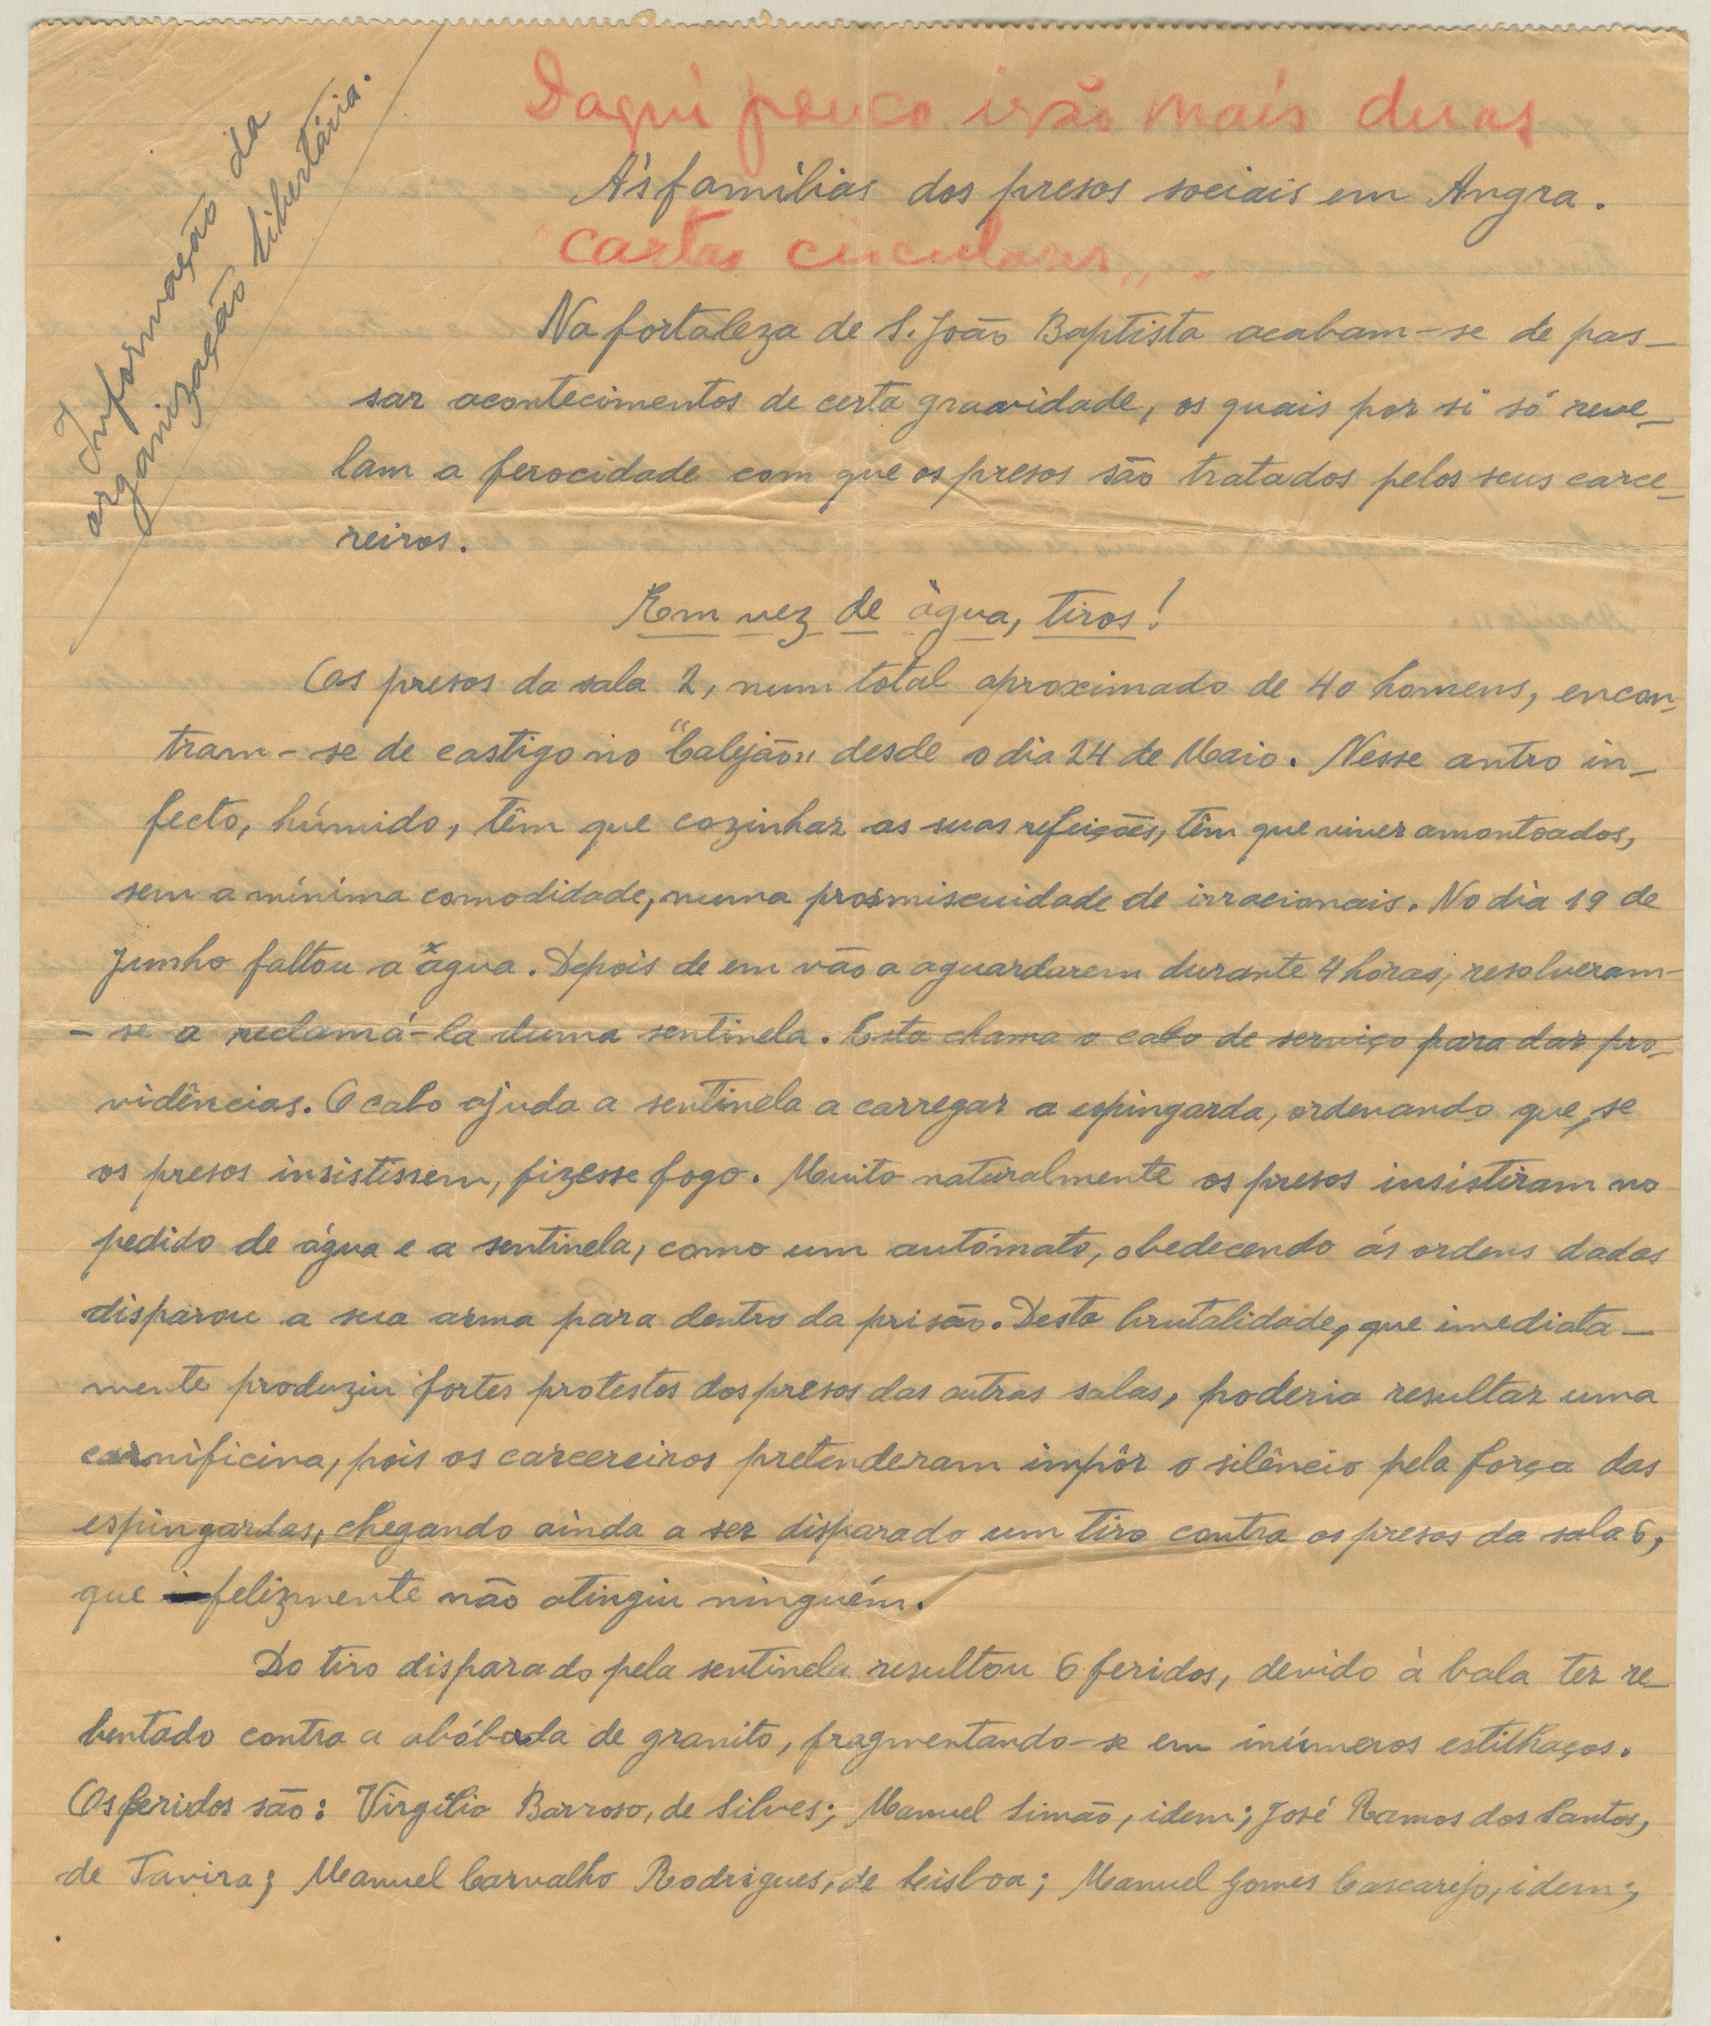 Informação da
organização libertária.
Daqui pouco irão mais duas
A's famílias dos presos sociais em Angra.
cartas circulares
Na fortaleza de S. João Baptista acabam-se de pas-
sar acontecimentos de certa gravidade, os quais por si só reve-
lam a ferocidade com que os presos são tratados pelos seus carce-
reiros.
Em vez de àgua, tiros!
Os presos da sala 2, num total aproximado de 40 homens, encon-
tram-se de castigo no "Calejão" desde o dia 24 de Maio. Nesse antro in-
fecto, húmido, têm que cozinhar as suas refeições, têm que viver amontoados,
sem a mínima comodidade, numa promiscuidade de irracionais. No dia 19 de
Junho faltou a àgua. Depois de em vão a aguardarem durante 4 horas, resolveram-
-se a reclamá-la duma sentinela. Esta chama o cabo de serviço para dar pro-
vidências. O cabo ajuda a sentinela a carregar a espingarda, ordenando que, se
os presos insistissem, fizesse fogo. Muito naturalmente os presos insistiram no
pedido de água e a sentinela, como um autómato, obedecendo ás ordens dadas
disparou a sua arma para dentro da prisão. Desta brutalidade, que imediata-
mente produziu fortes protestos dos presos das outras salas, poderia resultar uma
carnificina, pois os carcereiros pretenderam impôr o silêncio pela força das
espingardas, chegando ainda a ser disparado um tiro contra os presos da sala 6,
que felizmente não atingiu ninguém.
Do tiro disparado pela sentinela resultou 6 feridos, devido à bala ter re-
bentado contra a abóbada de granito, fragmentando-se em inúmeros estilhaços.
Os feridos são: Virgílio Barroso, de Silves; Manuel Simão, idem; José Ramos dos Santos,
de Tavira; Manuel Carvalho Rodrigues, de Lisboa; Manuel Gomes Cascarejo, idem;